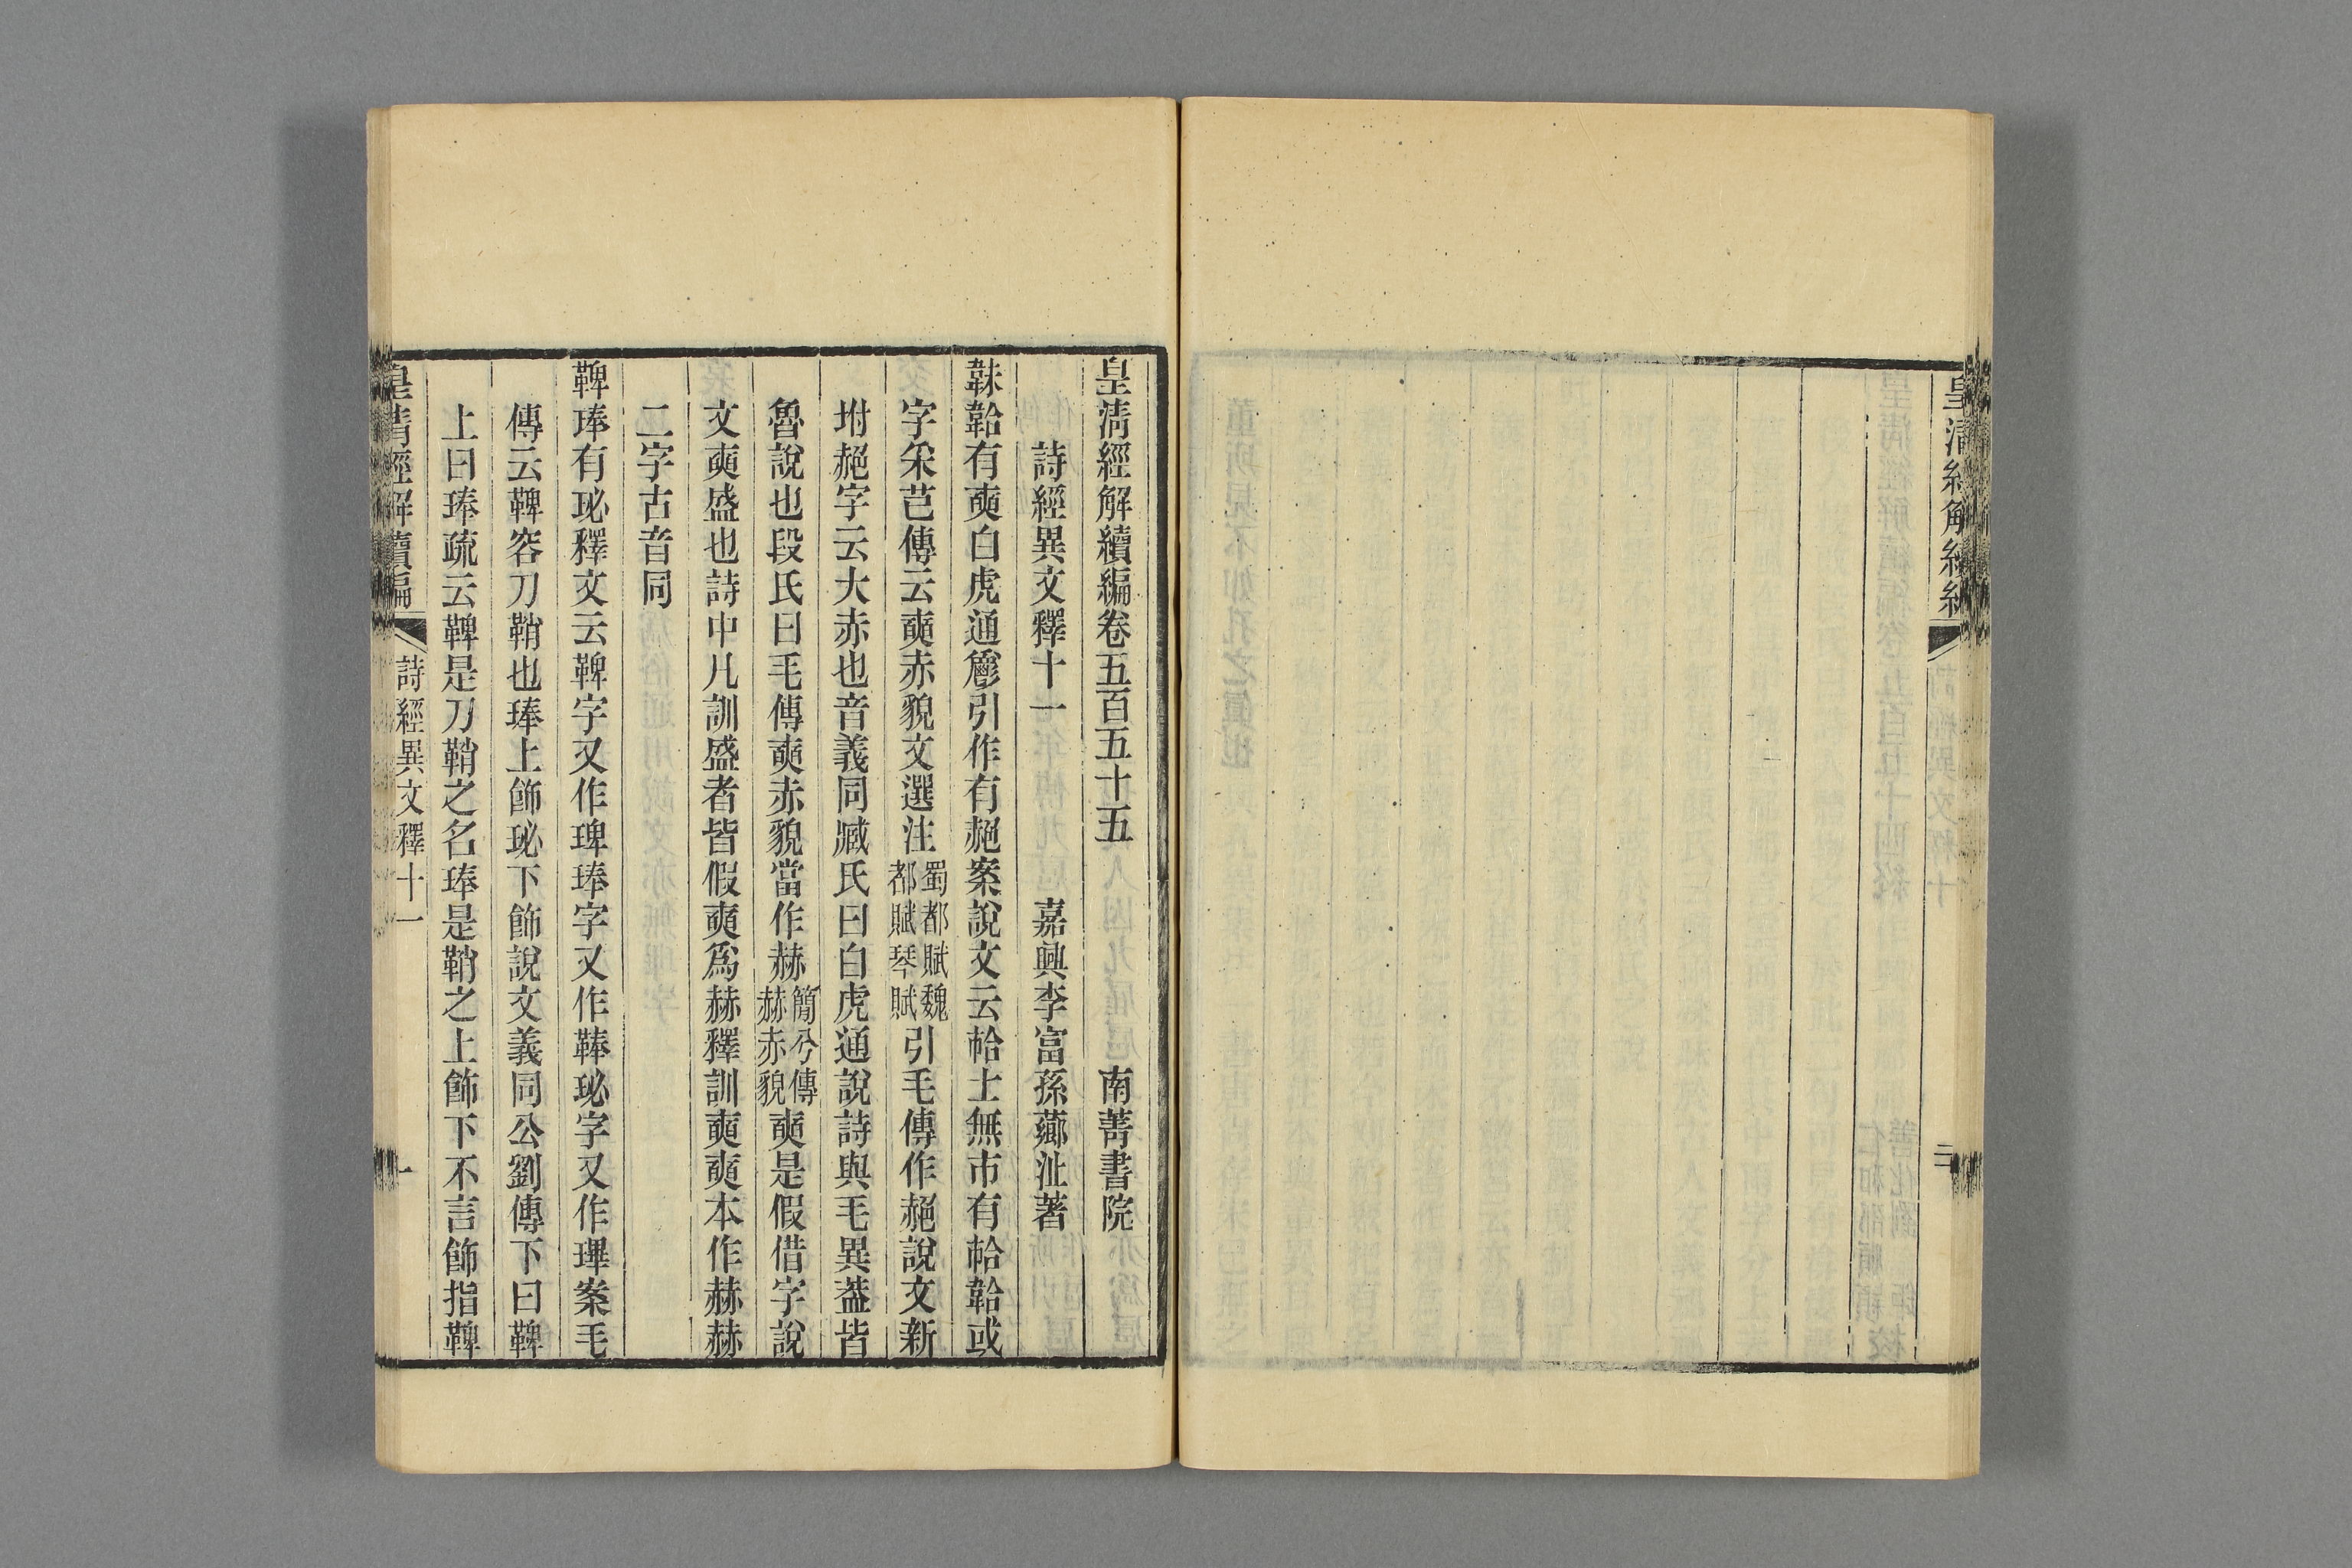 皇清經解續編卷五百五十五　南菁書院
詩經異文釋十一　嘉興李富孫薌沚著
韎韐有奭白虎通引作有赩案說文云帢士無市有帢韐或
字采芑傳云奭赤貌文選注蜀都賦魏都賦琴賦引毛傳作赩說文新
坿赩字云大赤也音義同臧氏曰白虎通說詩與毛異葢皆
魯說也段氏曰毛傳奭赤貌當作赫簡兮傳赫赤貌奭是假借字說
文奭盛也詩中凡訓盛者皆假奭爲赫釋訓奭奭本作赫赫
二字古音同
鞞琫有珌釋文云鞞字又作琕琫字又作鞛珌字又作琿案毛
傳云鞞容刀鞘也琫上飾珌下飾說文義同公劉傳下曰鞞
上曰琫疏云鞞是刀鞘之名琫是鞘之上飾下不言飾指鞞
皇清經解續編　詩經異文釋十一　一